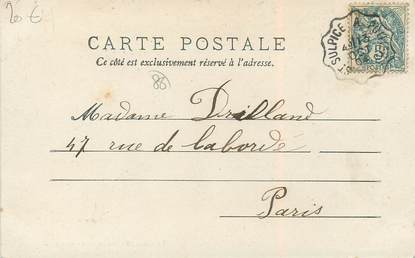 20 €
CARTE POSTALE
Ce côté est exclusivement réservé à l'adresse.
86
SULPICE
Madame Drilland
47 rue de Laborde
Paris